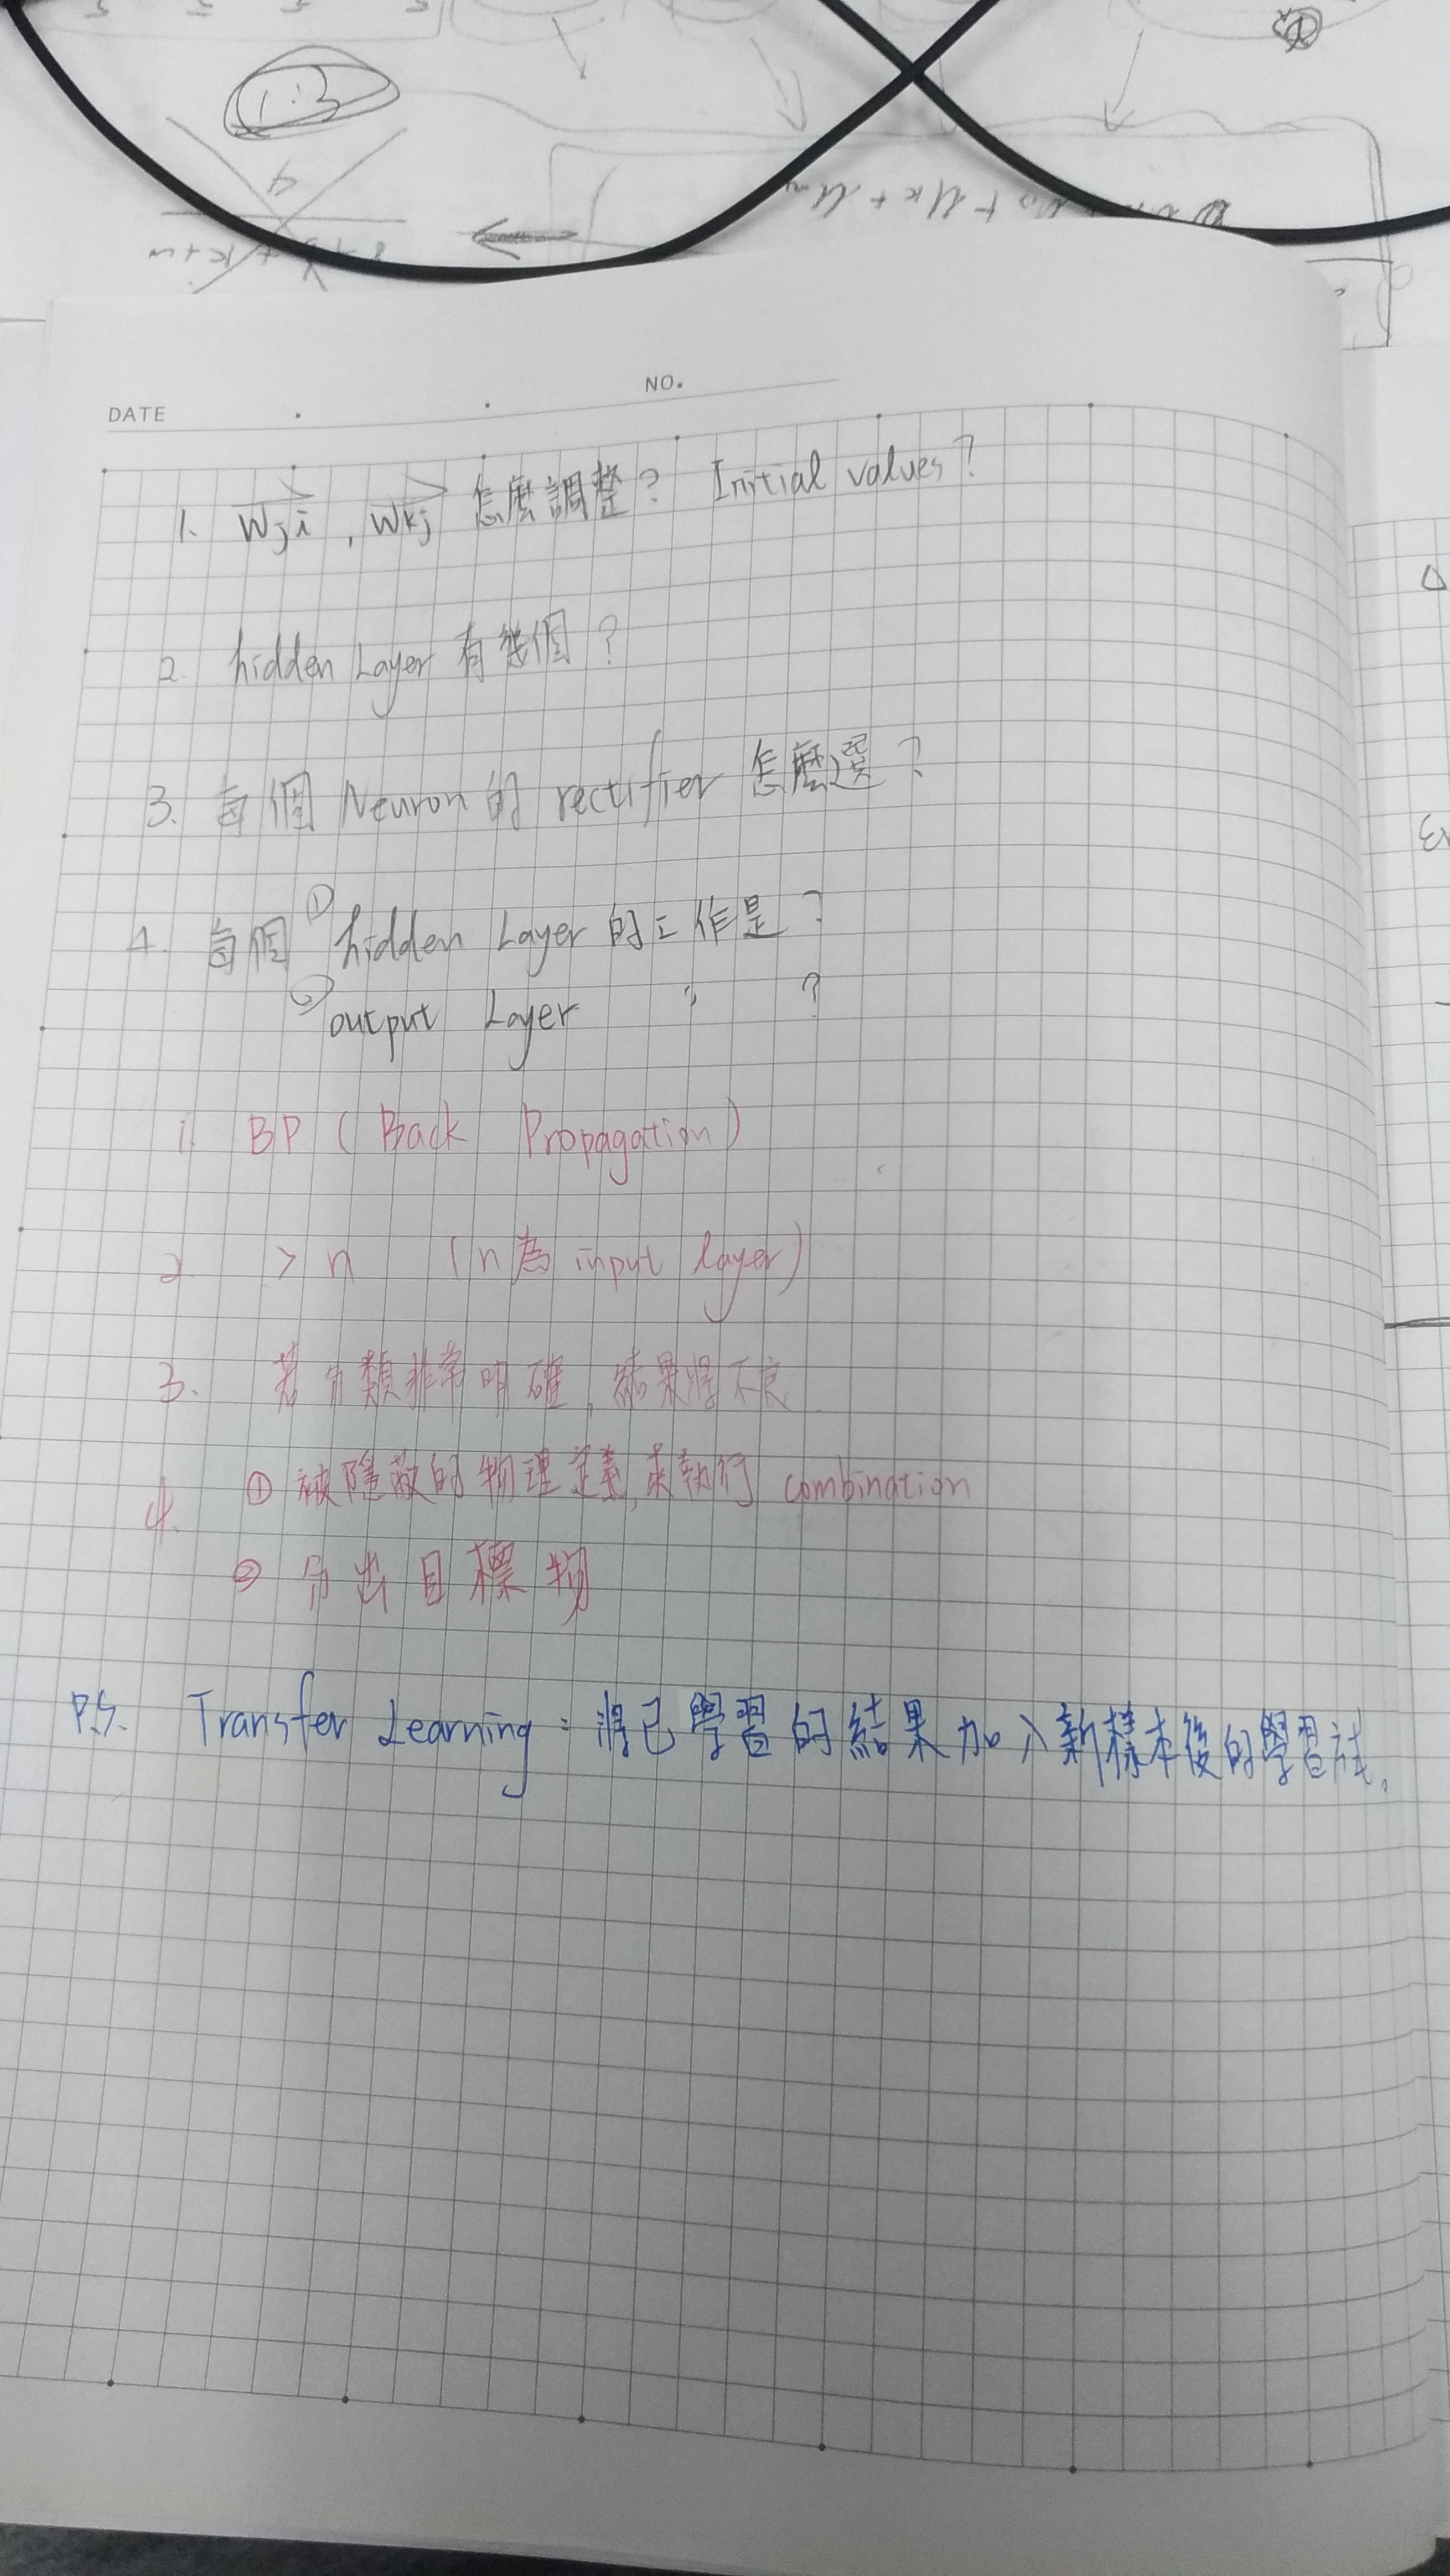 1:3
4
NO.
DATE
1. Wji , Wkj 怎麼調整? Initial values?
2. hidden Layer 有幾個?
3. 每個 Neuron 的 rectifier 怎麼選?
4. 每個 ① hidden Layer 的工作是?
② output Layer 〃 ?
1. BP ( Back Propagation )
2 > n ( n 為 input layer )
3. 若分類非常明確, 結果將不良
4. ① 被隱蔽的物理定義, 來執行 combination
② 分出目標物
P.S. Transfer Learning : 將已學習的結果加入新樣本後的學習方式.